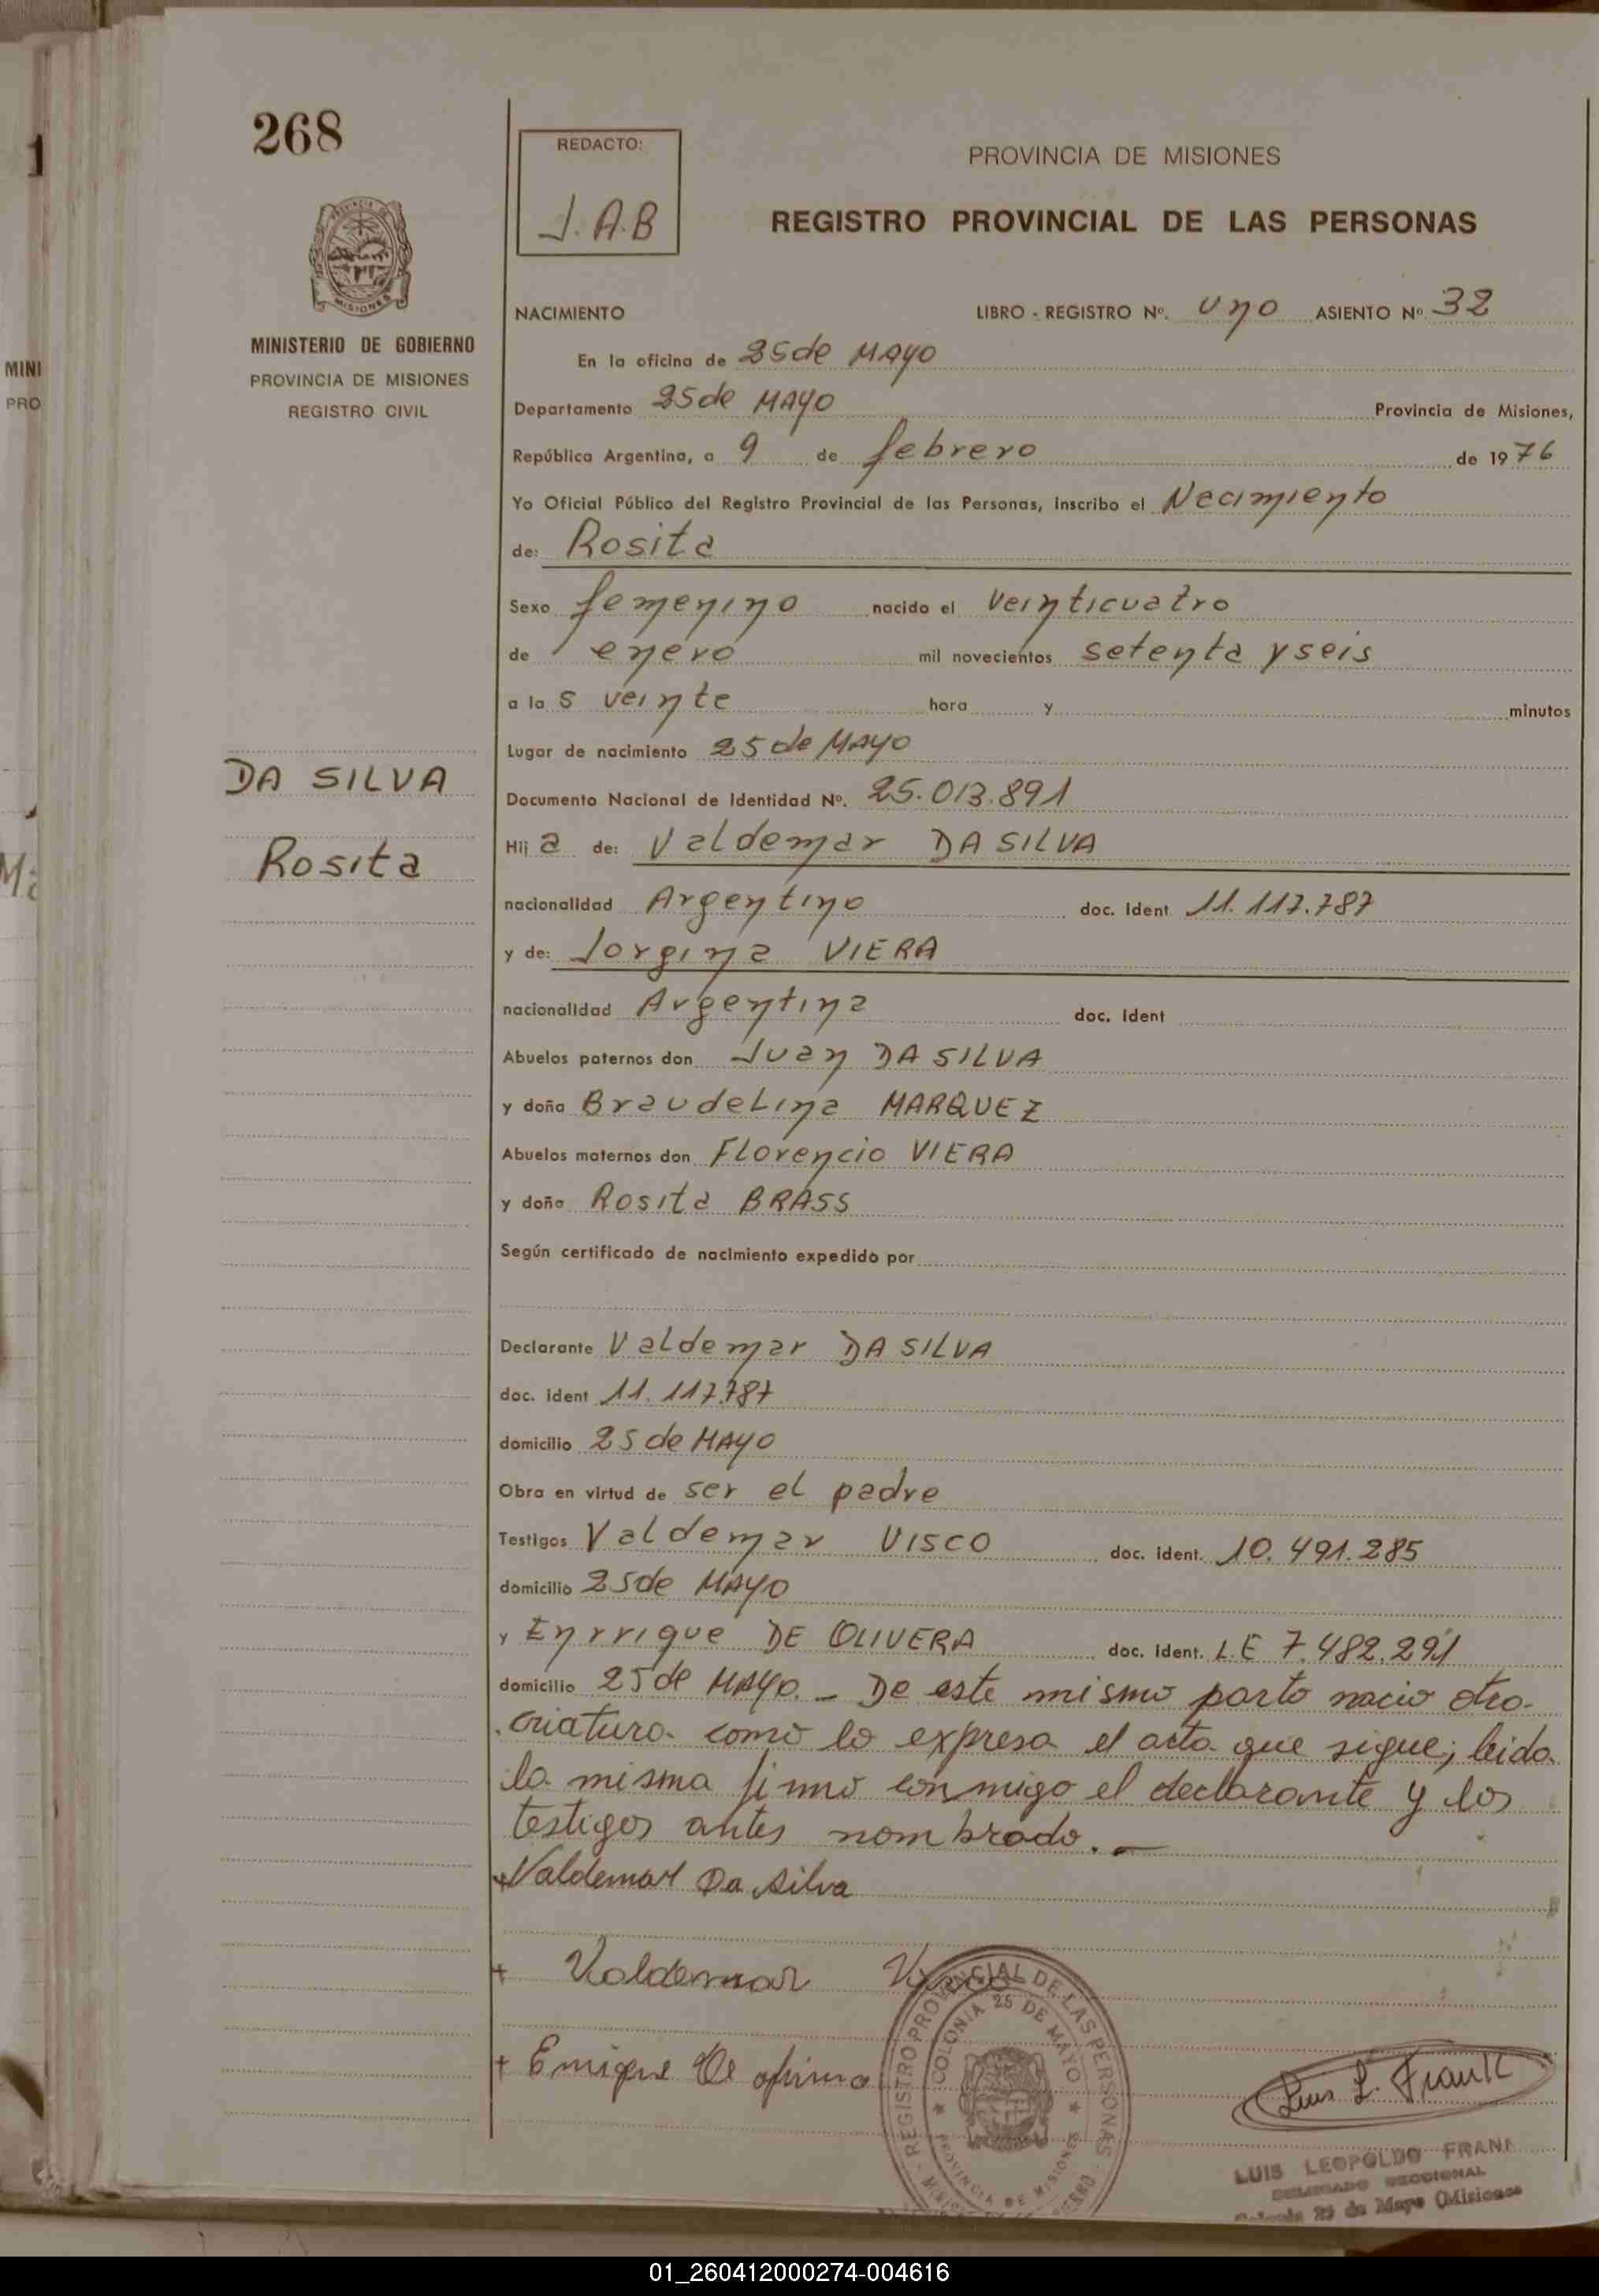 268
REDACTO:
J.A.B
PROVINCIA DE MISIONES
REGISTRO PROVINCIAL DE LAS PERSONAS
MISIONES
MINISTERIO DE GOBIERNO
PROVINCIA DE MISIONES
REGISTRO CIVIL
1
MINI
PRO
NACIMIENTO LIBRO - REGISTRO Nº. Uno ASIENTO Nº 32
En la oficina de 25 de MAYO
Departamento 25 de MAYO Provincia de Misiones,
República Argentina, a 9 de febrero de 1976
Yo Oficial Público del Registro Provincial de las Personas, inscribo el Nacimiento
de: Rosita
Sexo femenino nacido el Veinticuatro
de enero mil novecientos setenta y seis
a la s veinte hora y minutos
Lugar de nacimiento 25 de MAYO
DA SILVA
Rosita
Documento Nacional de Identidad Nº. 25.013.891
Hij a de: Valdemar DA SILVA
nacionalidad Argentino doc. ident 11.117.787
y de: Jorgina VIERA
nacionalidad Argentina doc. ident
Abuelos paternos don Juan DA SILVA
y doña Braudelina MARQUEZ
Abuelos maternos don Florencio VIERA
y doña Rosita BRASS
Según certificado de nacimiento expedido por
Declarante Valdemar DA SILVA
doc. ident 11.117.787
domicilio 25 de MAYO
Obra en virtud de ser el padre
Testigos Valdemar VISCO doc. ident. 10.491.285
domicilio 25 de MAYO
y Enrrique DE OLIVERA doc. ident. L.E 7.482.291
domicilio 25 de MAYO. - De este mismo parto nacio otra
criatura como lo expresa el acta que sigue; leida
la misma firmó conmigo el declarante y los
testigos antes nombrado. -
+Valdemar Da Silva
+ Valdemar
+ Enrique De
REGISTRO PROVINCIAL DE LAS PERSONAS
COLONIA 25 DE MAYO
PROVINCIA DE MISIONES
Luis L. Frank
LUIS LEOPOLDO FRANK
DELEGADO SECCIONAL
Colonia 25 de Mayo (Misiones
01_260412000274-004616